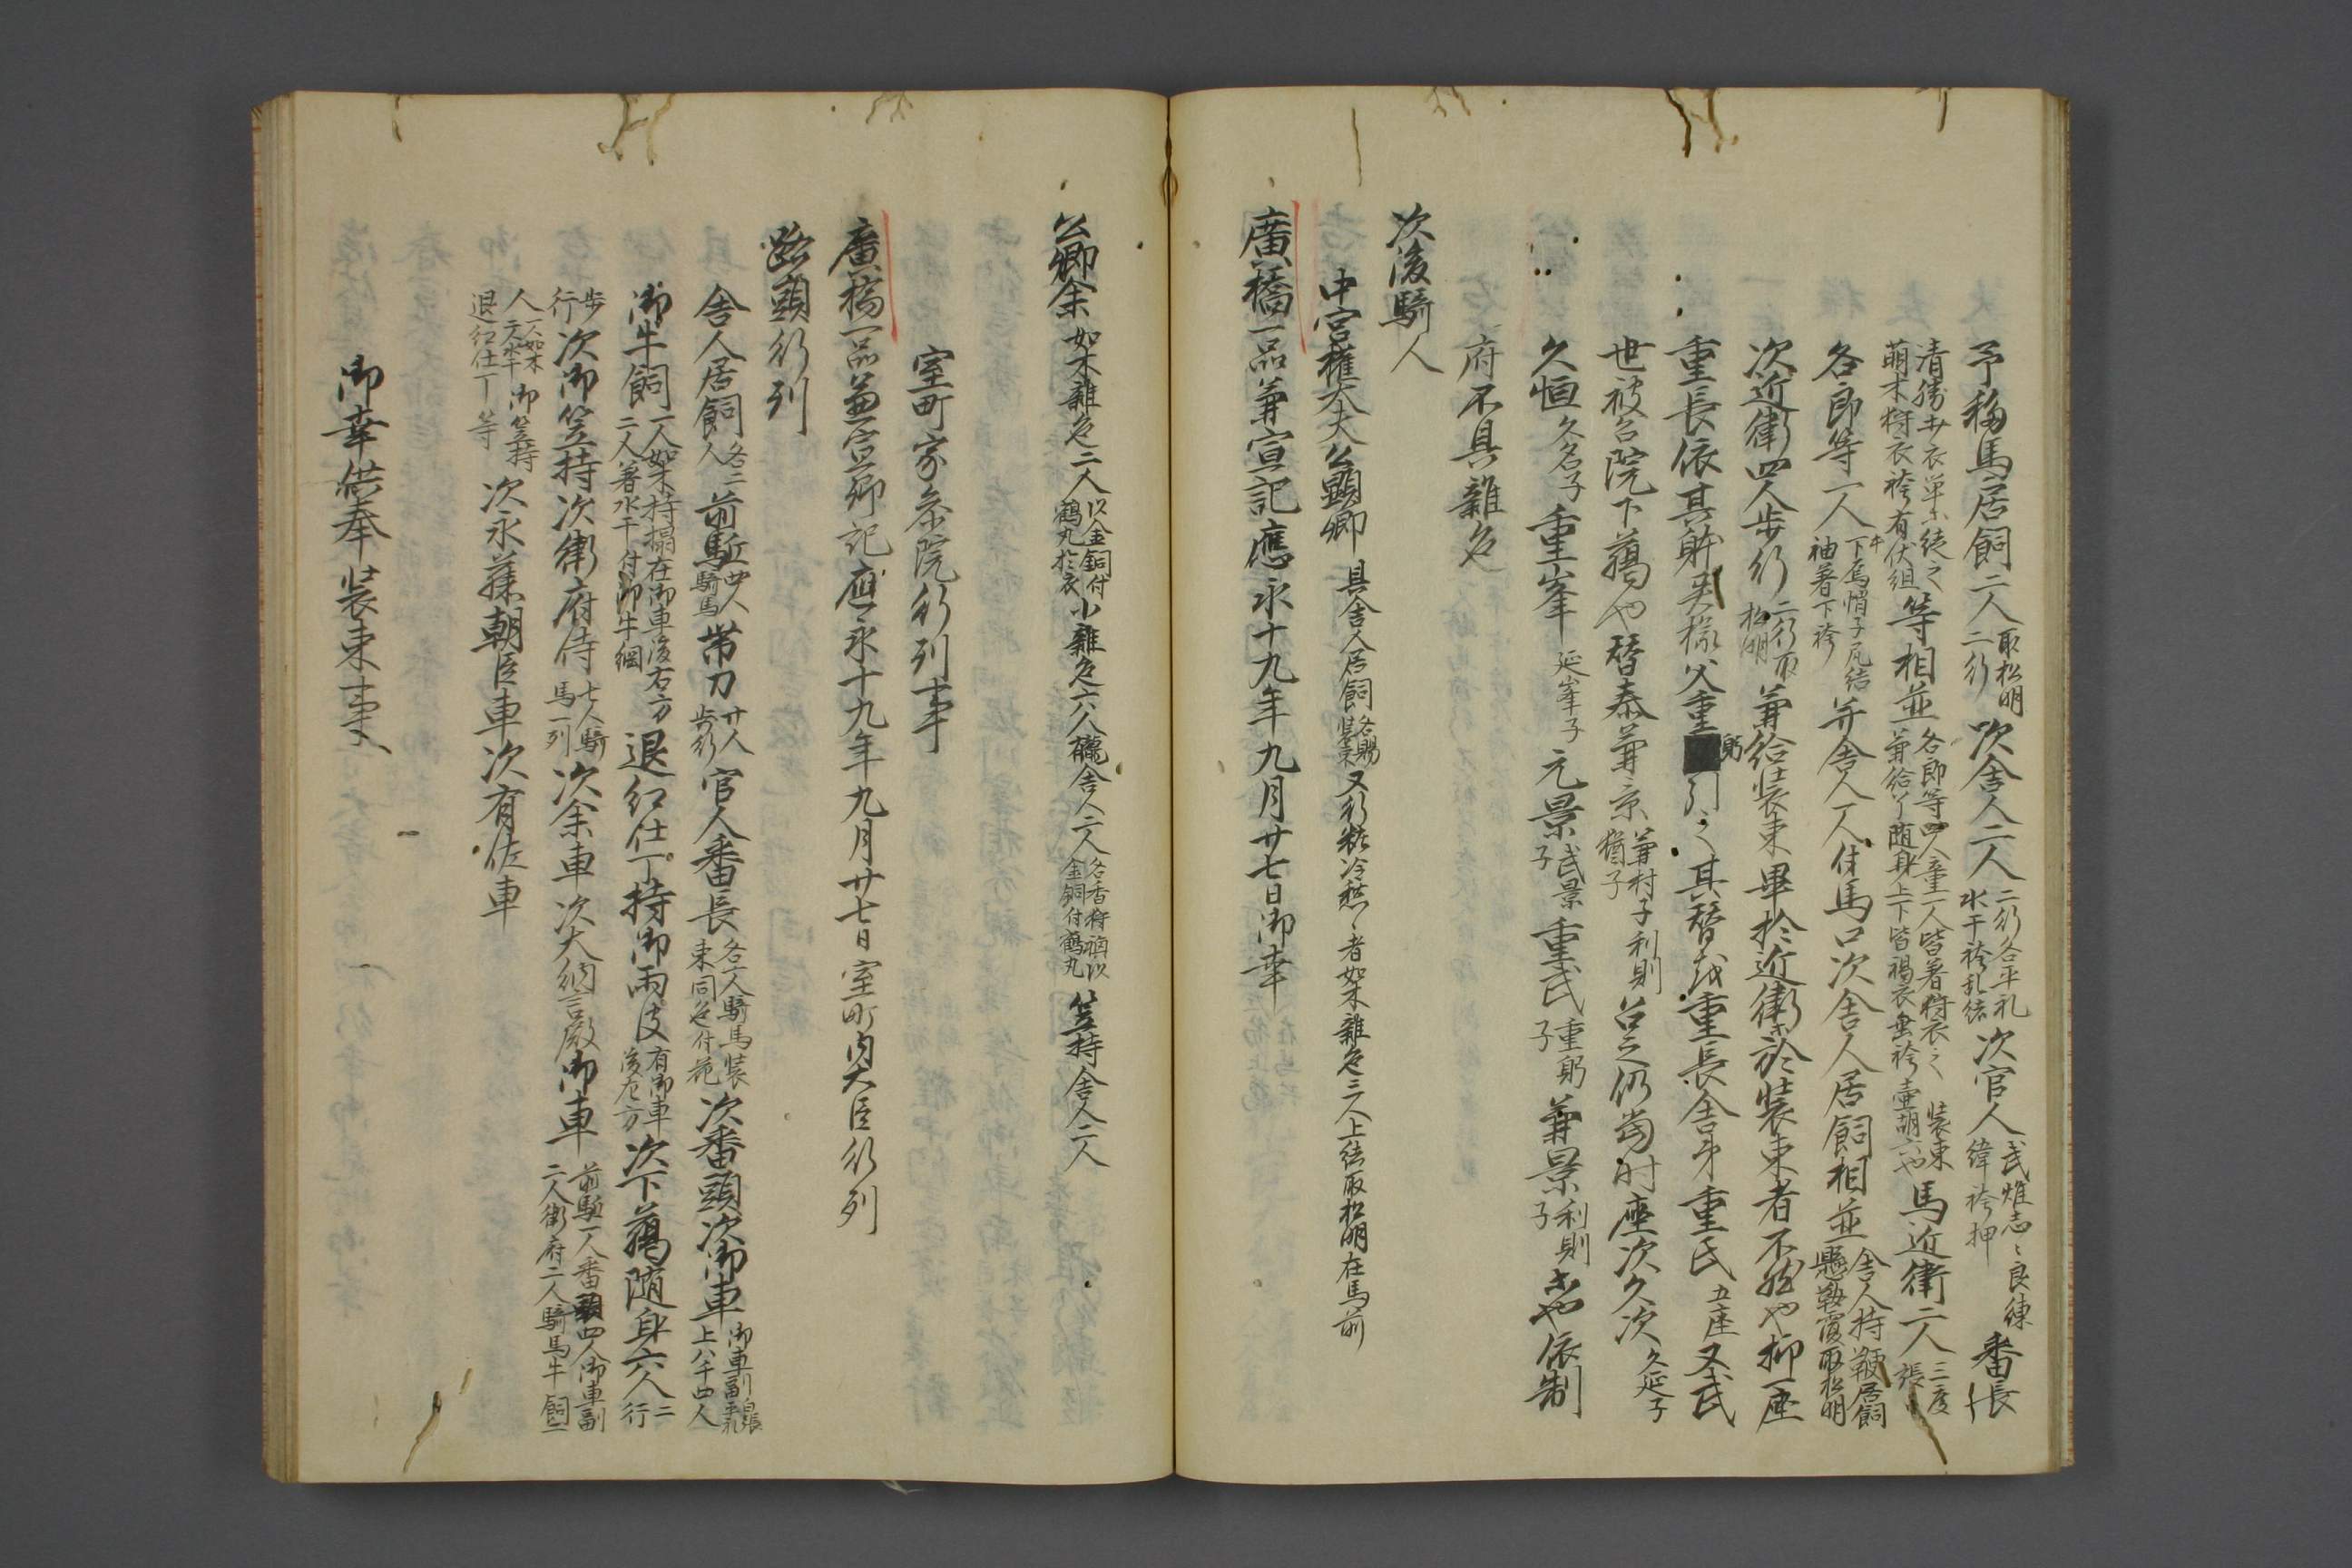 予移馬居飼二人取松明二行次舍人二人二行各平礼水干袴乱結次官人武雄志〻良練緯袴押番長
清勝 衣単 従之萌木狩衣袴有伏組等相並各郎等四人童一人皆著狩衣之 装束兼給了随身上下皆褐衣 袴壷胡六也馬近衛二人三度張
各郎等一人下烏帽子瓦結袖著下袴并舎人一人付馬口次舎人居飼相並舎人持鞭居飼懸鞍覆取松明
次近衛四人歩行二行取松明兼給装束畢於近衛 於装束者不然也抑一座
重長依其躰 様父重躬引之其替或重長舎弟重氏五座 武氏
世被召院下﨟也替秦兼京兼村子猶子利則召之仍當時座次久次久延子
久恒久名子重峯延峯子元景武景子重武重躬子兼景利則子 也依制
府不具雑色
次後騎人
中宮権大夫公顕卿具舎人居飼各賜装束又行粧冷然〻者如木雑色二人上結取松明在馬前
廣橋一品兼宣記應永十九年九月廿七日御幸
公卿余如木雑色二人以金銅付鶴丸於衣小雑色六人 舎人二人各香狩袴以金銅付鶴丸笠持舎人二人
室町家参院行列事
廣橋一品兼宣卿記應永十九年九月廿七日室町内大臣行列
路頭行列
舎人居飼各二人前駈四人騎馬帯刀廿人歩行官人番長各一人騎馬装束同色付花次番頭次御車御車副白張平礼上八千四人
御牛飼一人如木持榻在御車後右方二人著水干付御牛綱退紅仕丁持御雨皮有御車後左方次下﨟随身六人二行
歩行次御笠持次衛府侍七人騎馬一列次余車次大納言殿御車前駈一人番頭四人御車副二人衛府二人騎馬牛飼二
人一人如木二人水干御笠持退紅仕丁等次永藤朝臣車次有佐車
御幸供奉装束事